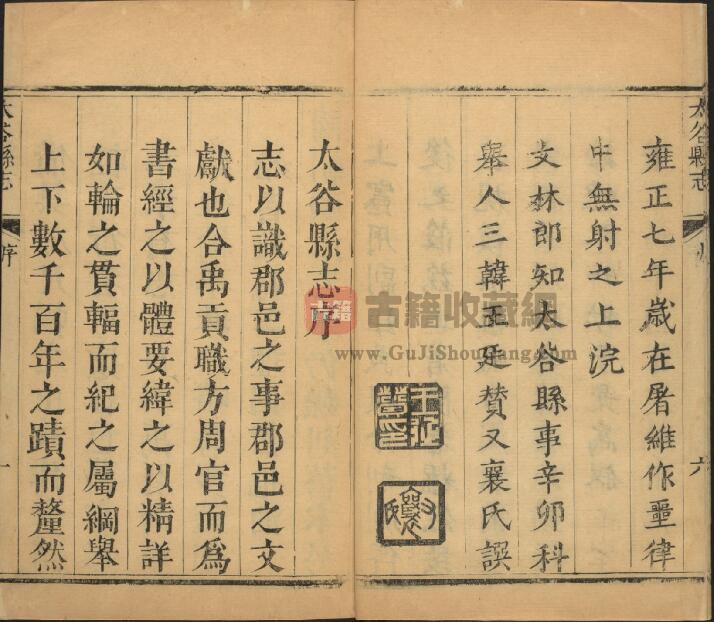 雍正七年歲在屠維作噩律
中無射之上浣
文林郎知太谷縣事辛卯科
舉人三韓王廷贊又襄氏譔
太谷縣志
六
太谷縣志序
志以識郡邑之事郡邑之文
獻也合禹貢職方周官而爲
書經之以體要緯之以精詳
如輪之貫輻而紀之屬綱舉
上下數千百年之蹟而釐然
太谷縣志
序
一
古籍
古籍收藏網
www.GuJiShouCang.com